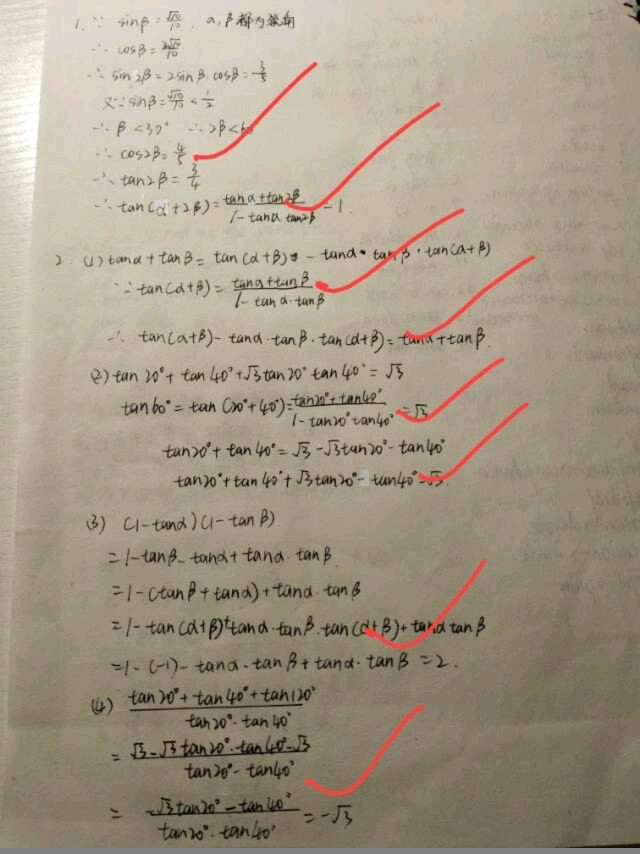 1. ∵ sinβ = √10/10 , α, β都为锐角
∴ cosβ = 3√10/10
∴ sin2β = 2sinβ·cosβ = 3/5
又∵ sinβ = √10/10 < 1/2
∴ β < 30° ∴ 2β < 60°
∴ cos2β = 4/5
∴ tan2β = 3/4
∴ tan(α+2β) = (tanα+tan2β)/(1-tanα tan2β) = 1.
2. (1) tanα + tanβ = tan(α+β) - tanα·tanβ·tan(α+β)
∵ tan(α+β) = (tanα+tanβ)/(1-tanα·tanβ)
∴ tan(α+β) - tanα·tanβ·tan(α+β) = tanα+tanβ.
(2) tan20° + tan40° + √3tan20° tan40° = √3
tan60° = tan(20°+40°) = (tan20°+tan40°)/(1-tan20°tan40°) = √3
tan20° + tan40° = √3 - √3tan20° - tan40°
tan20° + tan40° + √3tan20° - tan40° = √3.
(3) (1-tanα)(1-tanβ)
= 1-tanβ-tanα+tanα·tanβ
= 1-(tanβ+tanα)+tanα·tanβ
= 1-tan(α+β)+tanα·tanβ·tan(α+β)+tanαtanβ
= 1-(-1)-tanα·tanβ+tanα·tanβ = 2.
(4) (tan20°+tan40°+tan120°)/(tan20°·tan40°)
= (√3-√3tan20°·tan40°-√3)/(tan20°-tan40°)
= (-√3tan20°-tan40°)/(tan20°·tan40°) = -√3